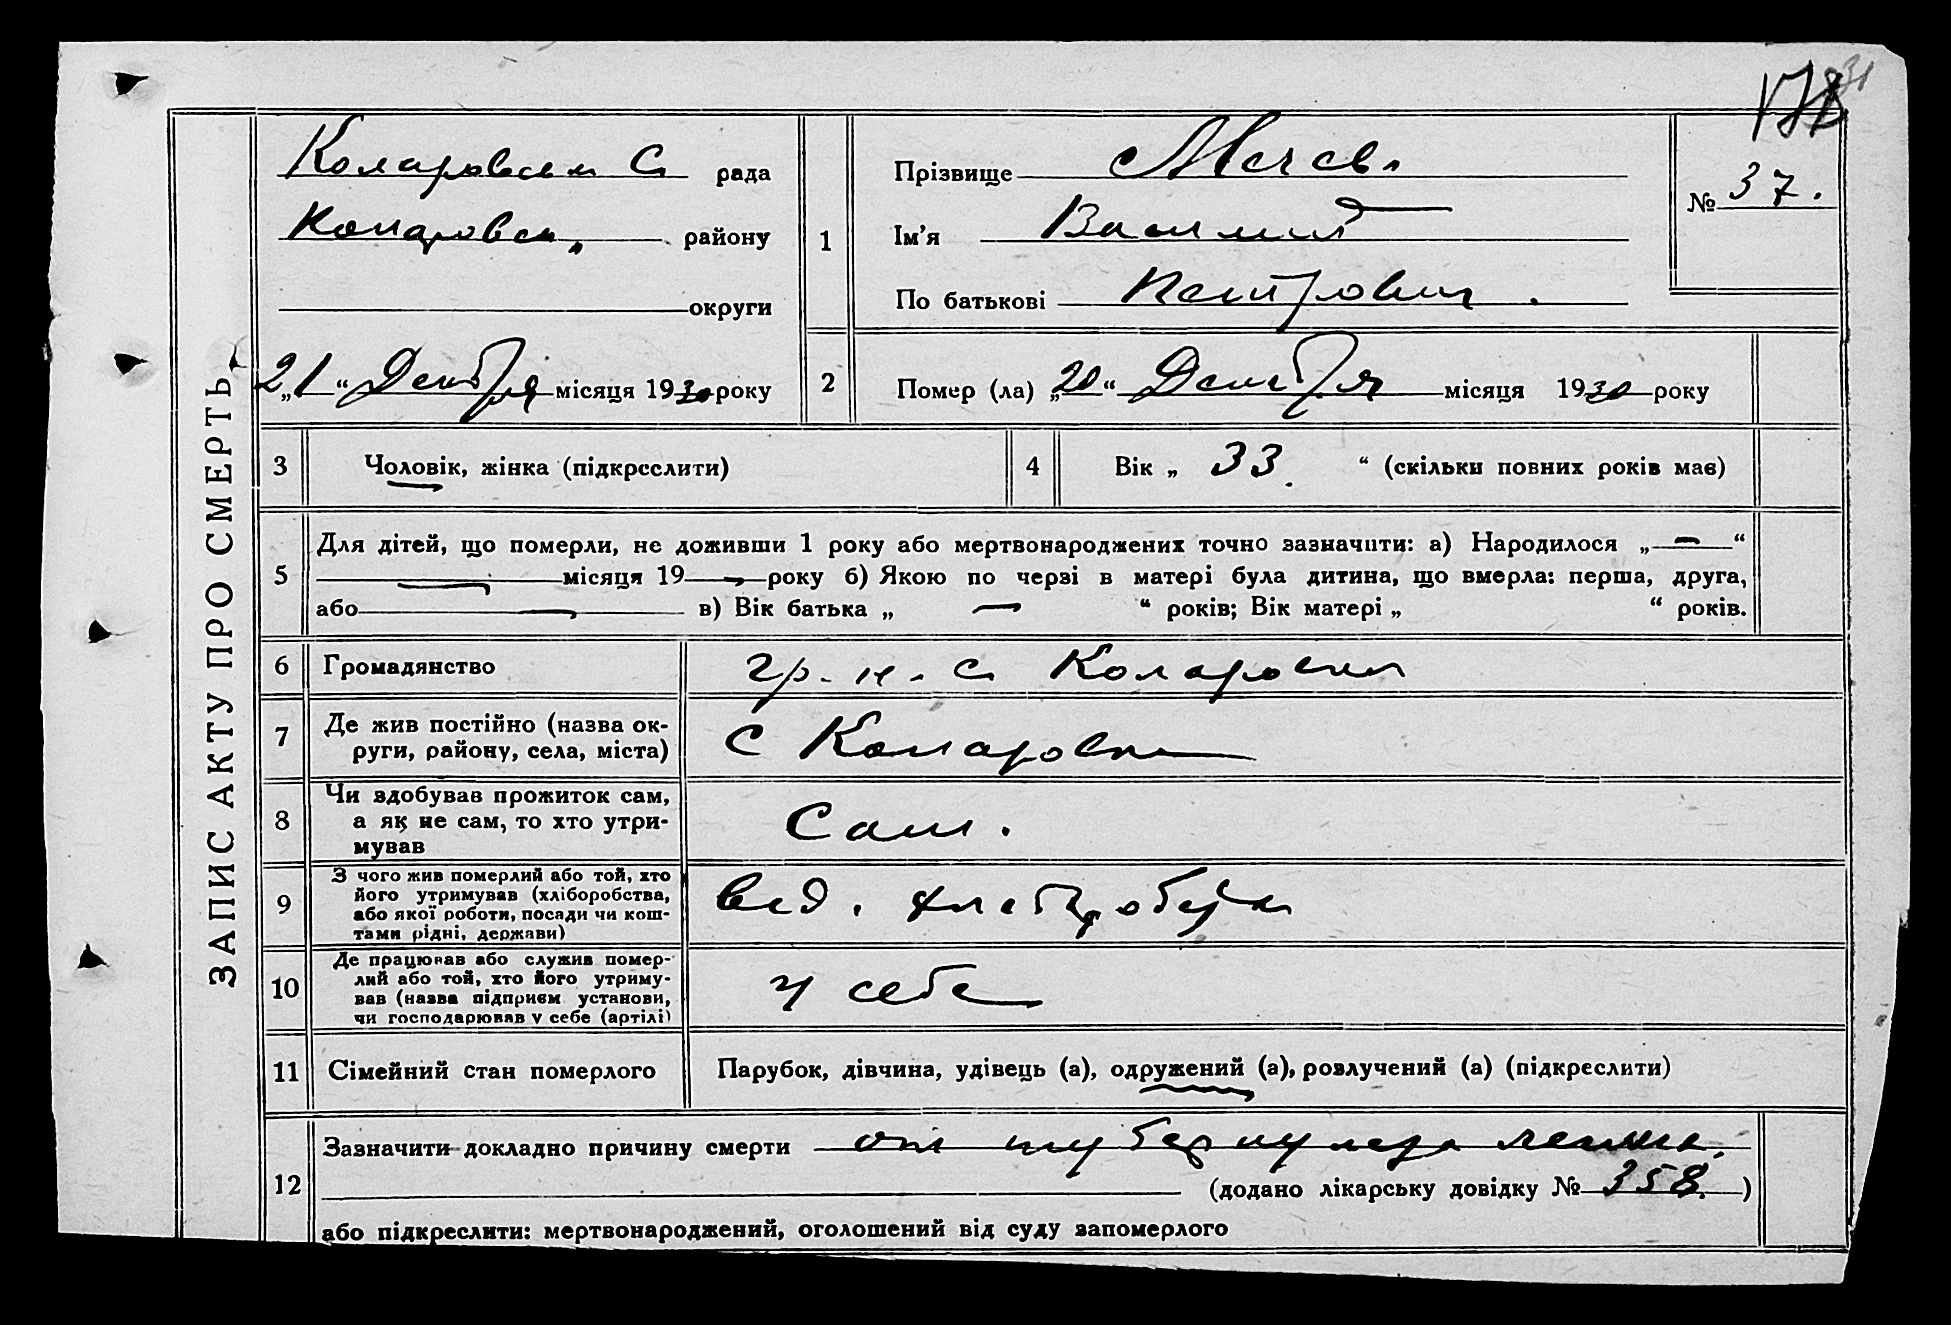 ЗАПИС АКТУ ПРО СМЕРТЬ
Коларовск с. рада
Коларовск. району
округи
„21“ Декабря місяця 1930 року
1
Прізвище
Ім'я Василий
По батькові Петрович.
№ 37.
2 Помер (ла) „20“ Декабря місяця 1930 року
3 Чоловік, жінка (підкреслити)
4 Вік „ 33 “ (скільки повних років має)
5 Для дітей, що померли, не доживши 1 року або мертвонароджених точно зазначити: а) Народилося „—“
— місяця 19— року б) Якою по черзі в матері була дитина, що вмерла: перша, друга,
або — в) Вік батька „ — “ років; Вік матері „ “ років.
6 Громадянство гр-н. с. Коларовка
7 Де жив постійно (назва ок-
руги, району, села, міста) с Коларовка
8 Чи здобував прожиток сам,
а як не сам, то хто утри-
мував Сам.
9 З чого жив померлий або той, хто
його утримував (хліборобства,
або якої роботи, посади чи кош-
тами рідні, держави)
10 Де працював або служив помер-
лий або той, хто його утриму-
вав (назва підприєм установи,
чи господарював у себе (артілі) у себе
11 Сімейний стан померлого Парубок, дівчина, удівець (а), одружений (а), розлучений (а) (підкреслити)
12 Зазначити докладно причину смерти от туберкулеза легких.
(додано лікарську довідку № 358.)
або підкреслити: мертвонароджений, оголошений від суду запомерлого